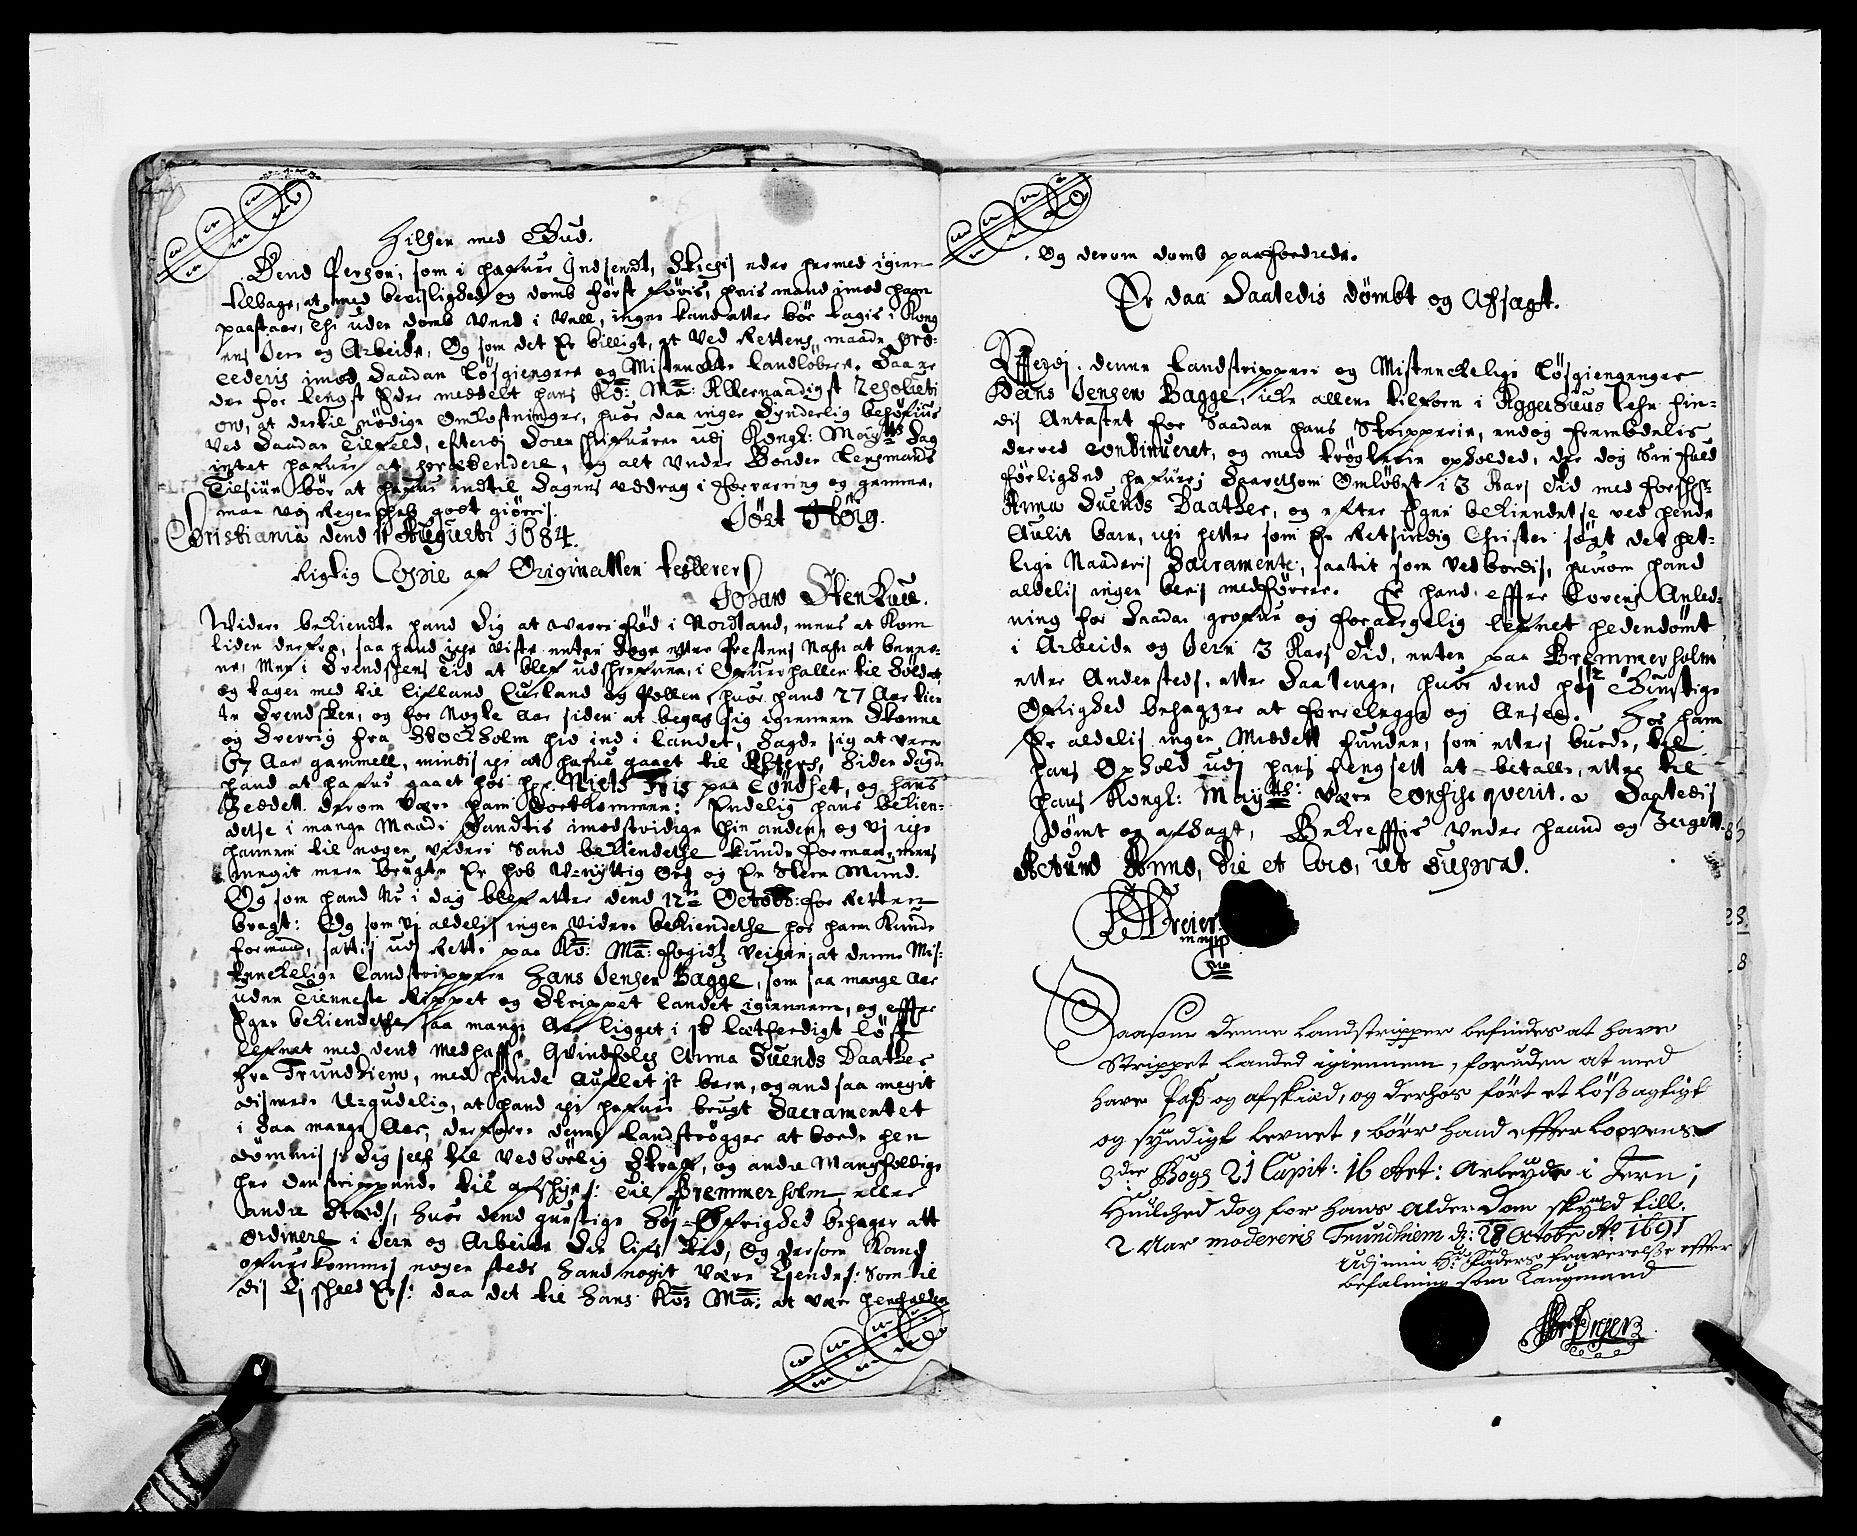 Hilsen med Gud.
Dend Person, som i hafuer Indsendt, skichis eder hermed igien
tilbage, at med bevislighed og domb först föris, hvis mand imod ham
paastaar, Thi uden domb Vend i Vell, ingen kand eller bör tagis i Kong
ens Jern og Arbeide, Og som det Er billigt, at Ved Rettens maade Pro-
cederis imod Saadan Lösgiengere og Mistenckte Landlöbere. Saa er
der for lengst Eder meddelt hans Ko: Ma: Allernaadigst Resoluti
on, at dertil nödige Omkostninger, huor daa ingen Synderlig behöfuis
Ved Saadan Tilfeld, efterdj Soren skrifueren udj Kongl: Mayts Sag
intet hafuer at prætendere, og alt Under Bonder Lensmands
Tilsiun bör at hafue indtil Sagens Uddrag i forvaring og giemme,
man Vos Regenschab godt giörris.
Christiania dend 11 Augusti 1684. Jört Höeg.
Rigtig Copie af Originallen testerer
Johan Stenkuul.
Widere bekiendte hand Sig at were föd i Nordland, mens at Kom
liden derfra, saa hand icke viste enten Sogn eller Prestens Nafn at benef-
ne, Men i Svendskens Tid at blef udskrefuen, i Ofuerhallen til Soldat
og tagen med til Lifland, Curland og Pollen, huor hand 27 Aar tien
te Svendsken, og for Nogle Aar siden at begaf sig igiennem Skaane
og Sverrig fra Stockholm hid ind i Landet, Sagde sig at were
67 Aar gammell, mindis icke at hafue gaaet til Alters, Siden Sagde
hand at hafue gaaet hos hr. Niels Friis paa Töndset, og hans
Seddell derom være ham bortkommen: Endelig hans bekien-
delse i mange Maade fandtis imodstridige hin anden, og Vj icke
hannem til nogen videre Sand bekiendelse kunde formaa, mens
megit mere brugte Er hob Unyttig Ord og En Slem Mund.
Og som hand Nu i dag blef atter dend 12te Octobr: for Retten
bragt: Og som Vj aldelis ingen Videre bekiendelse hos ham Kunde
formaae, sattis udj Rette paa Ko: Ma: fogidtz Veigne, at denne Mis-
tenckelige Landstripper Hans Jensen Bagge, som saa mange Aar
uden Tienneste Rippet og Strippet landet igiennem, og effter
Egen bekiendelse saa mange Aar ligget i it Letferdigt Löst
lefnet med dend medhaffte Qvindfolch Anna Suends Daatter
fra Trundhiem, med hinde Aufllet it barn, og and saa megit
disméere U-gudelig, at hand icke hafuer brugt Sacramentet
i Saa mange Aar, derforre denne Landströgger at borde hen
dömmis Sig self til Vedbörlig Straf, og andre Mangfollige
her omstrippende til afskye: Til Bremmerholm, eller
andre Stæds, huor dend gunstige Höj-Öfrighed behager att
ordinere i Jern og Arbeide Sin lifs tid, Og dersom Kand
ofuerkommis nogen steds hand nogit Være Eiendes: Som til
dis Ej scheed Er: daa det til hans Ko: Ma: at vær henfalden
Og derom domb paafordrede.
Er daa Saaledis dömbt og Afsagt.
Efterdj denne Landstripper og Mistenckelige Lösgiengenger
Hans Jensen Bagge, icke allene tilforn i Aggershuus Lehn fin-
dis Antastet for Saadan hans Stripperie, endog frembdelis
derved Continueret, og med tröglerie opholded, der dog Sin fuld
förlighed hafuer, Saavelsom Omlöbet i 3 Aars Tid med forschr:
Anna Suends Daatter, og efter Egen bekiendelse ved hende
Aulit barn, icke heller som En Retsindig Christen sögt det hel-
lige Naaderis Sacramente, saatit som Vedbordis, huorom hand
aldelis ingen beviis medförer. Er hand effter Lovens Anled-
ning for Saadan grofue og forargelig Lefnet hendömt
i Arbeide og Jern 3 Aars Tid, enten paa Bremmerholm
eller Andensteds, eller Saalenge, huor dend höj Günstige
Öfrighed behager at forrelegge og Ansee. Hos ham
Er aldelis ingen Middell funden, som ellers burde, til
hans Ophold udj hans fengsell at betalle, eller til
hans Kongl: Mayts: være Confisqverit. Saaledis
dömt og afsagt, Bekreffter Under haand og Zergel.
Actum Anno, Die et Loco, ut Supra.
FDreier
mppa
Saasom denne Landstripper befindes at have
Strippet Landed igiennem, foruden at med
have Pass og afskied, og derhos fört et lössagtigt
og syndigt levnet, börr hand effter Lovens
3die Bogs 21 Capit: 16 Art: Arbeyde i Jern;
Huilched dog for hans Alderdom skyld till
2 Aar modereris Trundhiem d: 28 Octobr Ao 1691
Udj min S: Faders fraverelse effter
befalning som Laugmand
PDreyer